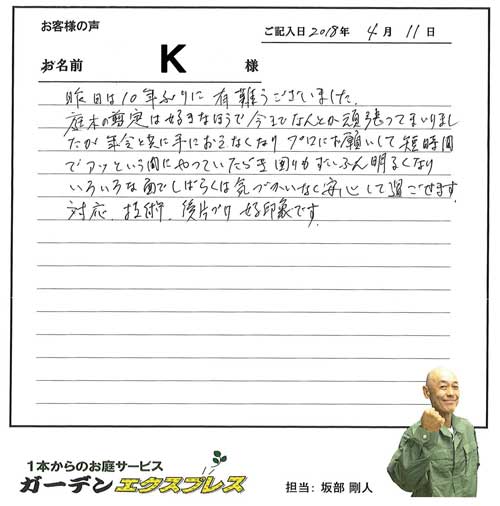 お客様の声
ご記入日 2018年 4月 11日
お名前 K 様
昨日は10年ぶりに有難うございました。
庭木の剪定は好きなほうで今までなんとか頑張ってまいりまし
たが年令と共に手におえなくなりプロにお願いして短時間
でアッという間にやっていただき回りもずいぶん明るくなり
いろいろな面でしばらくは気づかいなく安心して過ごせます
対応、技術、後片づけ好印象です。
1本からのお庭サービス
ガーデンエクスプレス
担当: 坂部 剛人